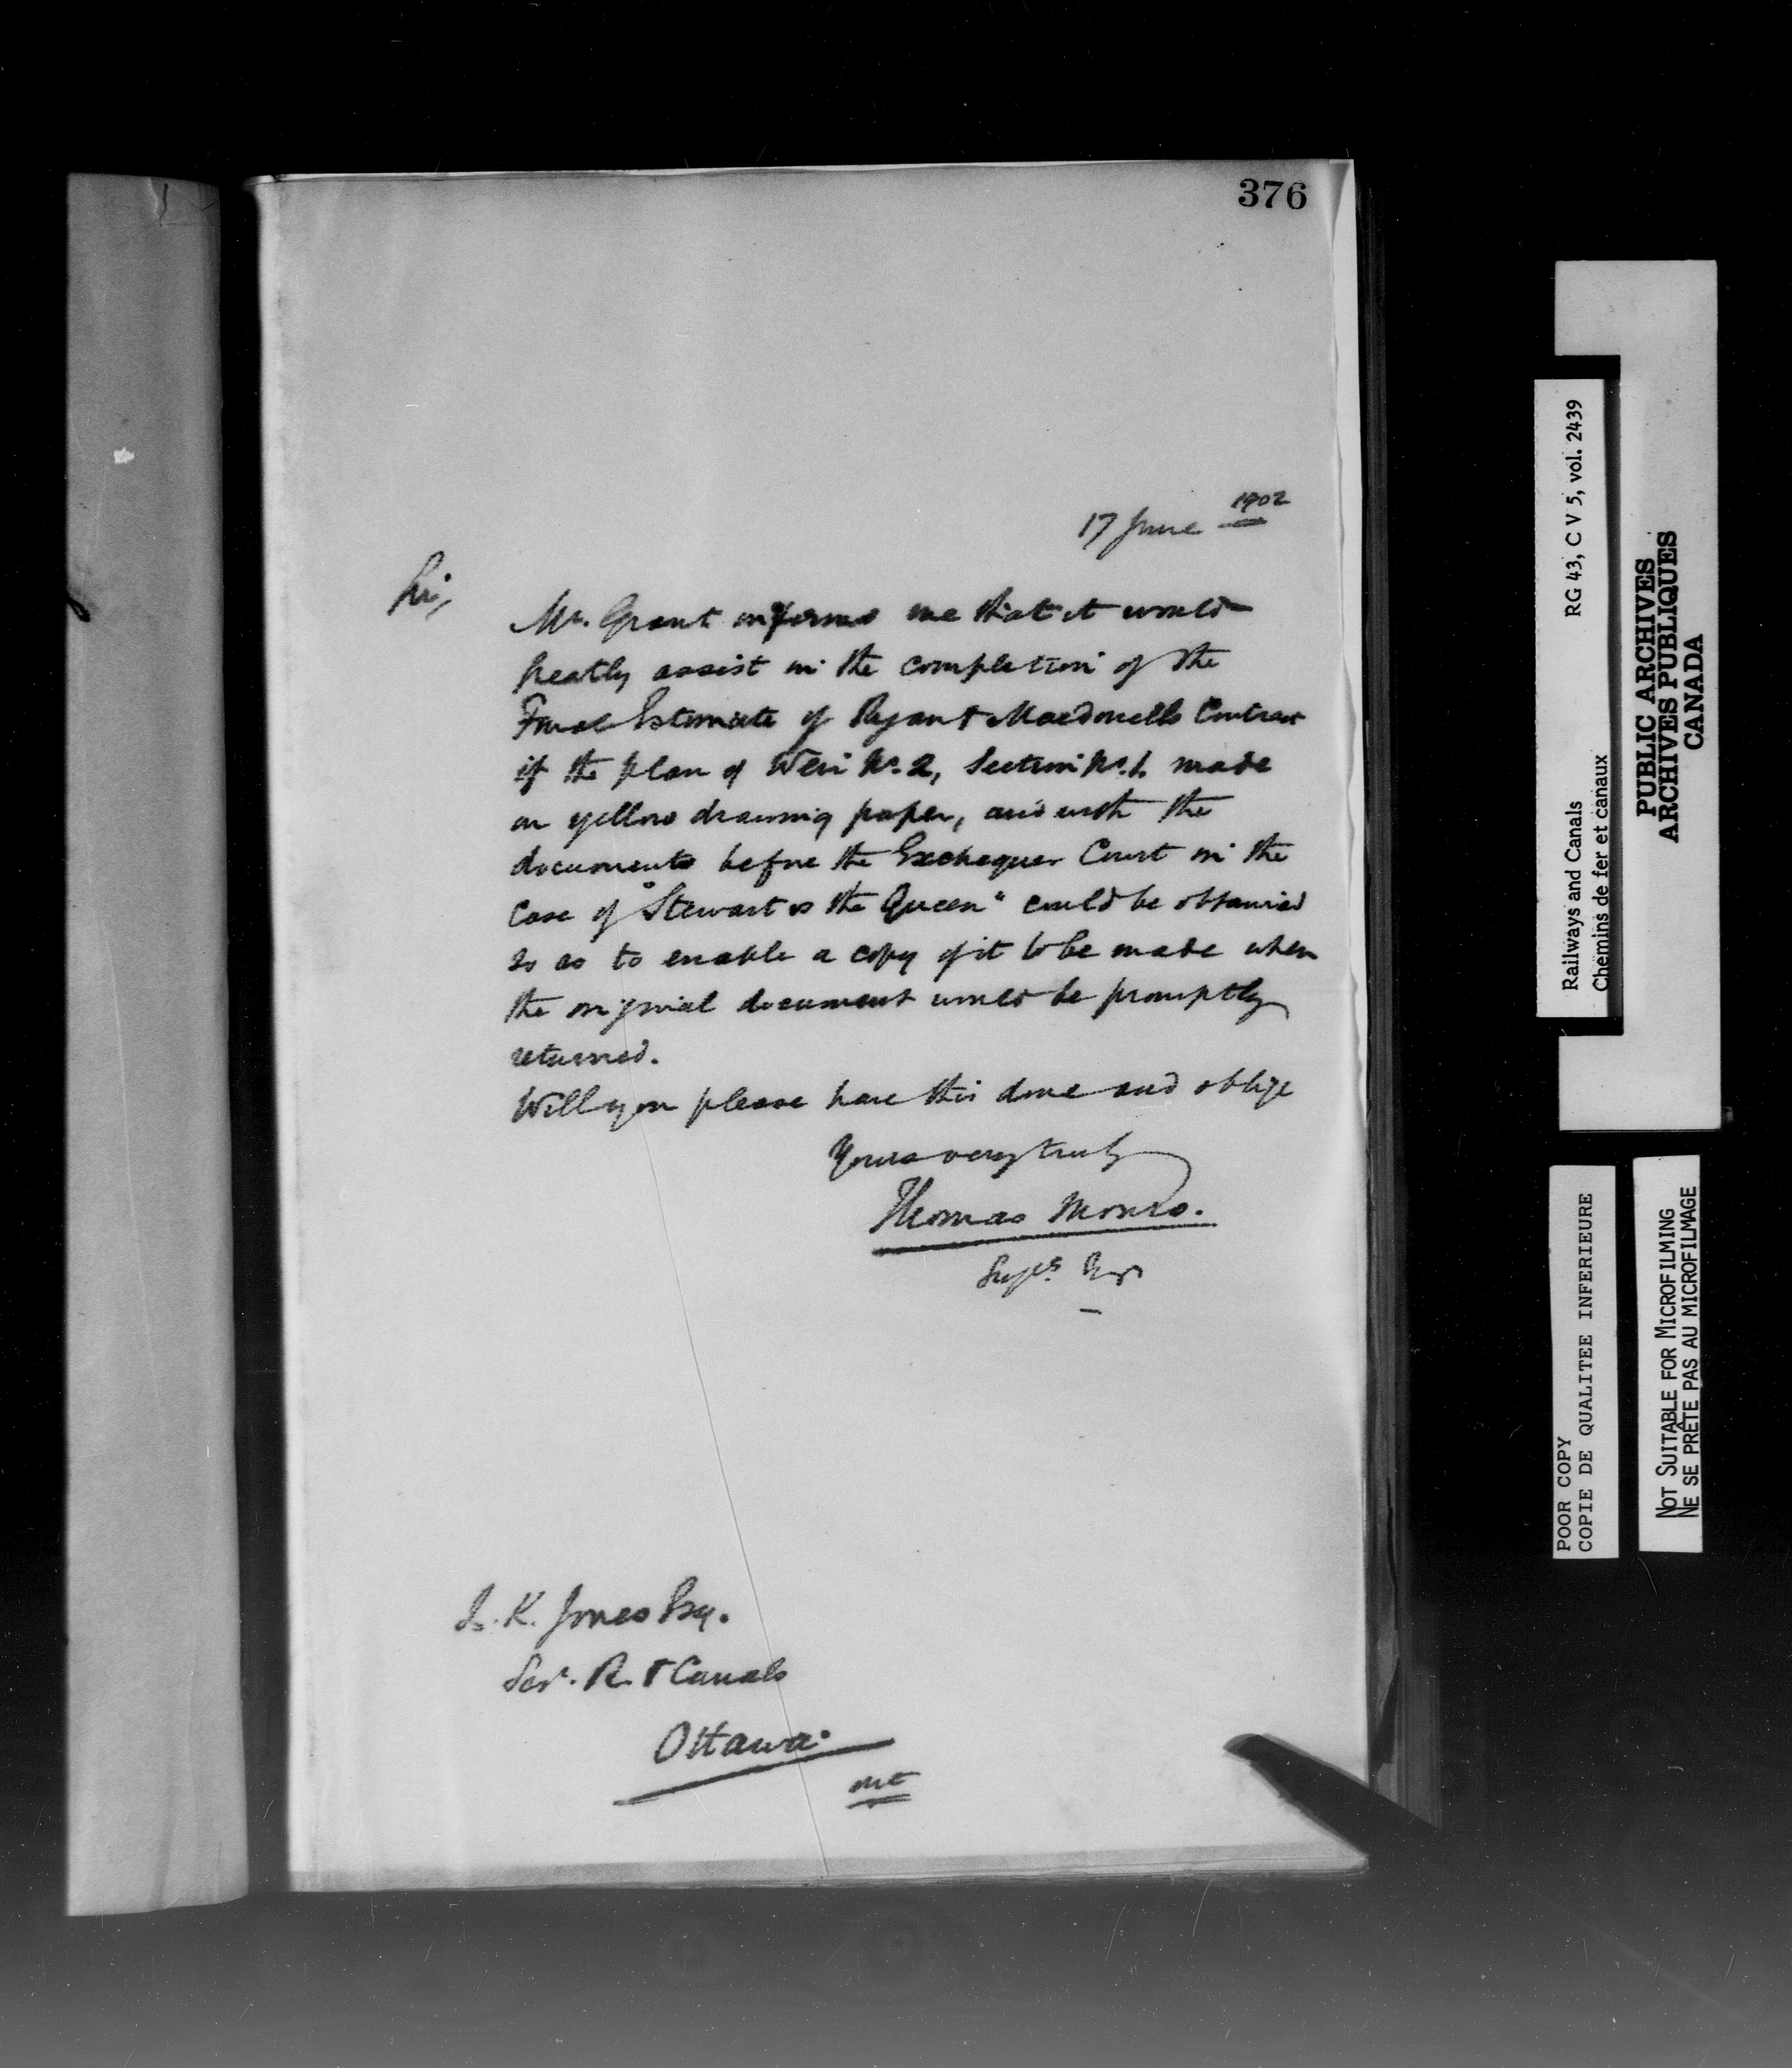 376
17 June 1902
Sir,
Mr. Grant informs me that it would
greatly assist in the completion of the
Final Estimate of Ryan & Macdonells Contract
if the plan of Weir No. 2, Section No. 1. made
on yellow drawing paper, and with the
documents before the Exchequer Court in the
Case of "Stewart vs the Queen" could be obtained
so as to enable a copy of it to be made when
the original document would be promptly
returned.
Will you please have this done and oblige
Yours very truly
Thomas Monro.
Supt. Engr
L. K. Jones Esq.
Secy. R. & Canals
Ottawa.
Railways and Canals RG 43, C V 5, vol. 2439
Chemins de fer et canaux
PUBLIC ARCHIVES
ARCHIVES PUBLIQUES
CANADA
POOR COPY
COPIE DE QUALITEE INFERIEURE
NOT SUITABLE FOR MICROFILMING
NE SE PRÊTE PAS AU MICROFILMAGE